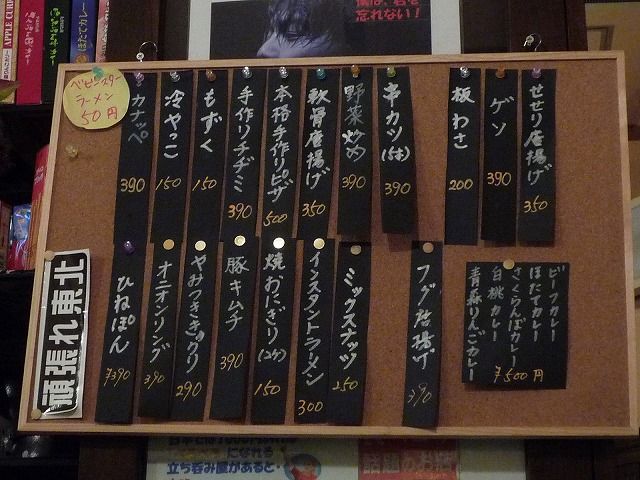 僕は、君を
忘れない!
ベビースター
ラーメン
50円
カナッペ
390
冷やっこ
150
もずく
150
手作りチヂミ
390
本格手作りピザ
500
軟骨唐揚げ
350
野菜炒め
390
串カツ(5本)
390
板わさ
200
ゲソ
390
せせり唐揚げ
350
頑張れ東北
ひねぽん
390
オニオンリング
390
やみつききゅうり
290
豚キムチ
390
焼おにぎり(2ケ)
150
インスタントラーメン
300
ミックスナッツ
250
フグ唐揚げ
390
ビーフカレー
ほたてカレー
さくらんぼカレー
白桃カレー
青森りんごカレー
500円
になれる
立ち呑み屋があると・